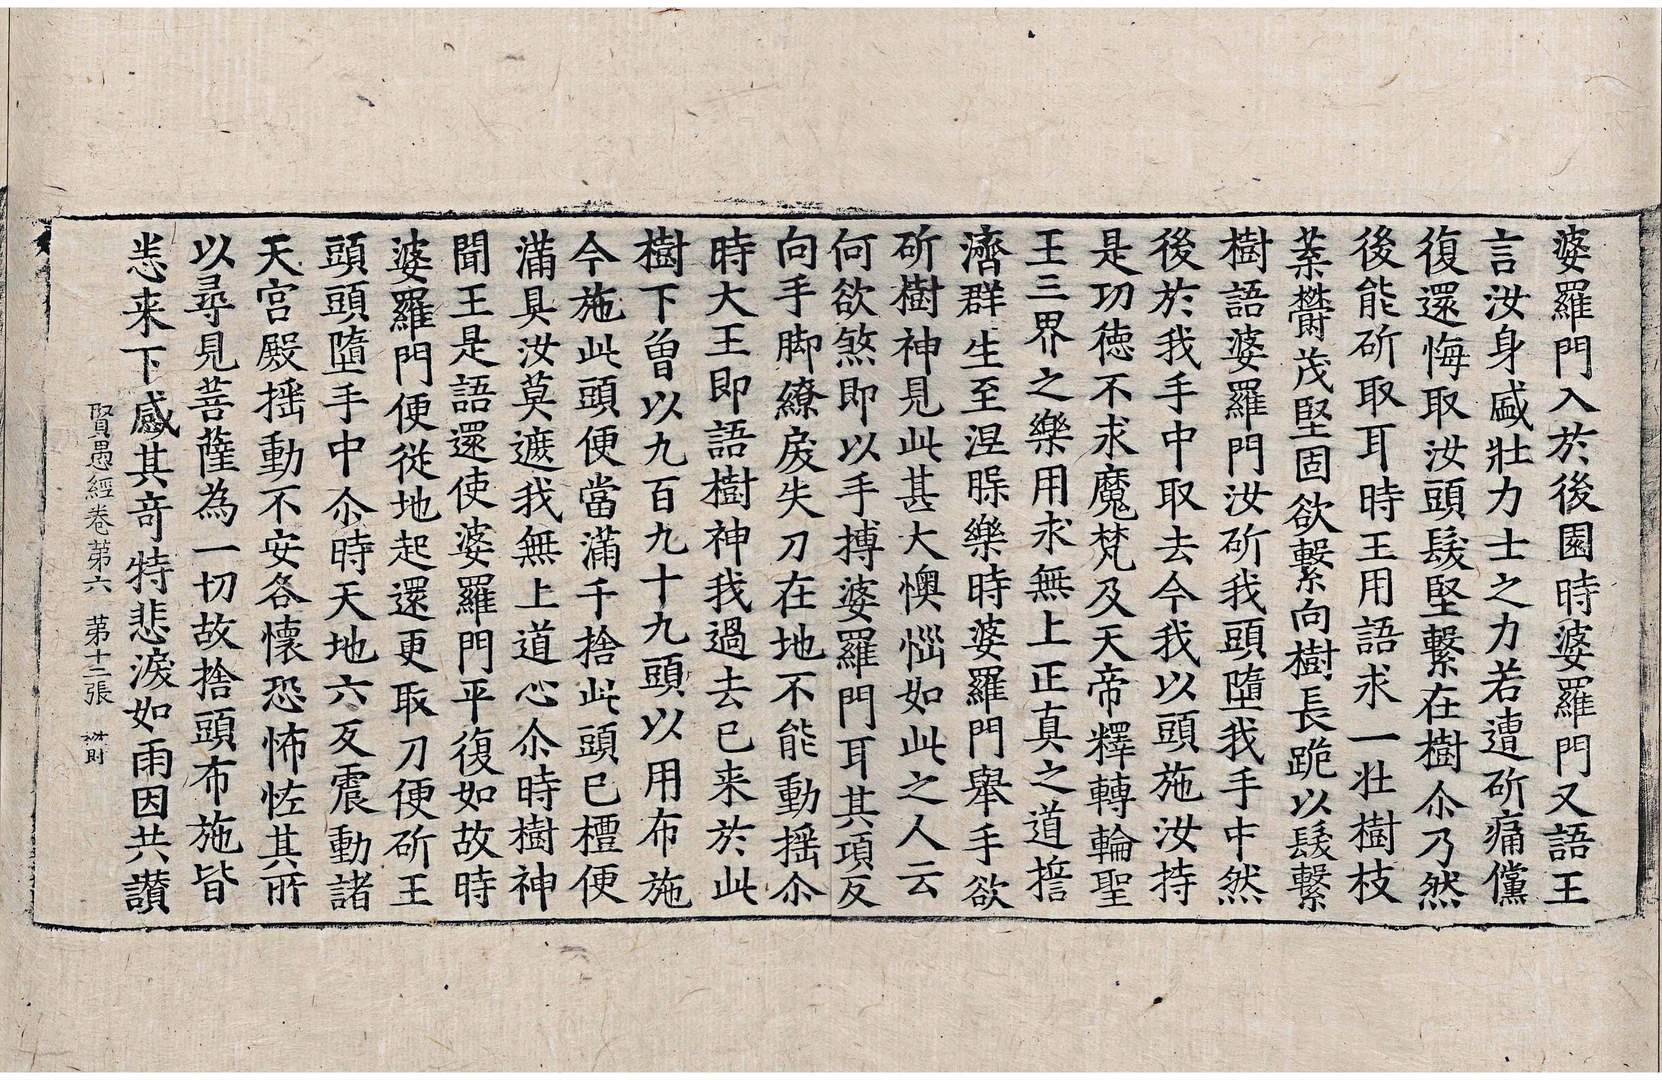 婆羅門入於後園時婆羅門又語王
言汝身盛壯力士之力若遭斫痛儻
復還悔取汝頭髮堅繫在樹尒乃然
後能斫取耳時王用語求一壯樹枝
葉欝茂堅固欲繫向樹長跪以髮繫
樹語婆羅門汝斫我頭墮我手中然
後於我手中取去今我以頭施汝持
是功德不求魔梵及天帝釋轉輪聖
王三界之樂用求無上正真之道誓
濟群生至涅槃樂時婆羅門舉手欲
斫樹神見此甚大懊惱如此之人云
何欲煞即以手搏婆羅門耳其項反
向手脚繚戾失刀在地不能動搖尒
時大王即語樹神我過去已来於此
樹下曾以九百九十九頭以用布施
今施此頭便當滿千捨此頭已檀便
滿具汝莫遮我無上道心尒時樹神
聞王是語還使婆羅門平復如故時
婆羅門便從地起還更取刀便斫王
頭頭墮手中尒時天地六反震動諸
天宮殿搖動不安各懷恐怖怪其所
以尋見菩薩為一切故捨頭布施皆
悉来下感其竒特悲淚如雨因共讚
賢愚經卷第六 第十二張